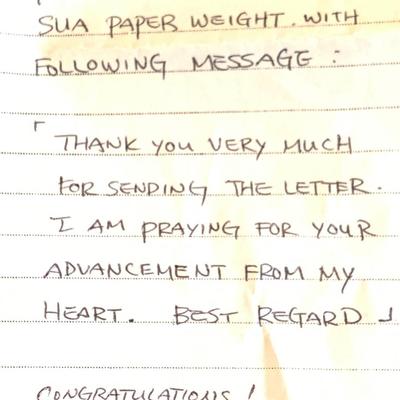 SUA PAPER WEIGHT. WITH
FOLLOWING MESSAGE :
「 THANK YOU VERY MUCH
FOR SENDING THE LETTER.
I AM PRAYING FOR YOUR
ADVANCEMENT FROM MY
HEART. BEST REGARD 」
CONGRATULATIONS !